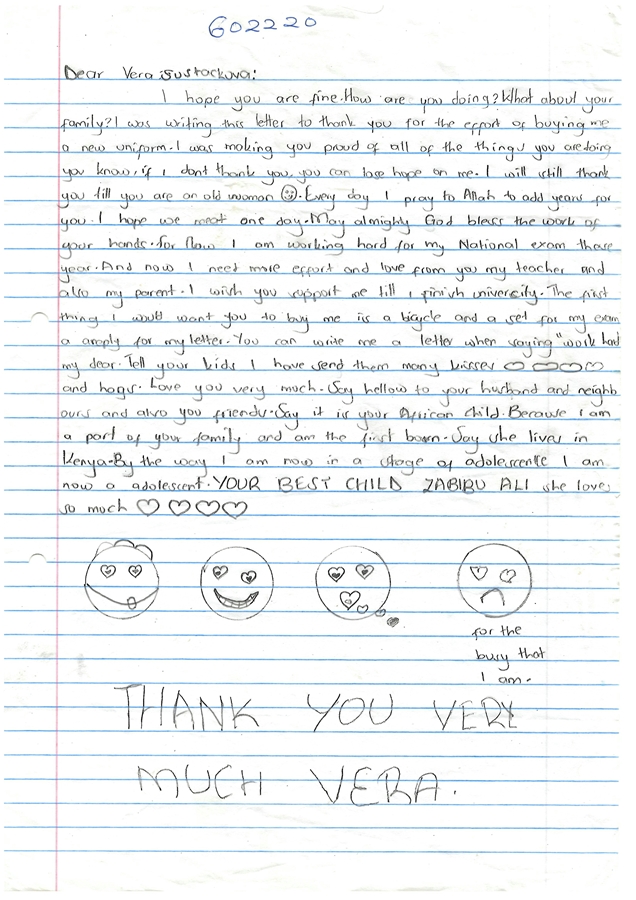 602220
Dear Vera Sustackova:
I hope you are fine. How are you doing? What about your
family? I was writing this letter to thank you for the effort of buying me
a new uniform. I was making you proud of all of the things you are doing
you know, if i dont thank you, you can lose hope on me. I will still thank
you till you are an old woman. Every day I pray to Allah to add years for
you. I hope we meat one day. May almighty God bless the work of
your hands. for Now I am working hard for my National exam those
year. And now I need more effort and love from you my teacher and
also my parent. I wish you support me till i finish univercity. The first
thing I would want you to buy me is a bicycle and a set for my exam
a amply for my letter. You can write me a letter when saying "work hard
my dear. Tell your kids I have send them many kisses
and hogs. Love you very much. Say hellow to your husband and neighb
ours and also you friends. Say it is your African child. Because i am
a part of your family and am the first born. Say she lives in
Kenya. By the way I am now in a stage of adolescente I am
now a adolescent. YOUR BEST CHILD ZABIBU ALI she loves
so much
for the
busy that
I am.
THANK YOU VERY
MUCH VERA.